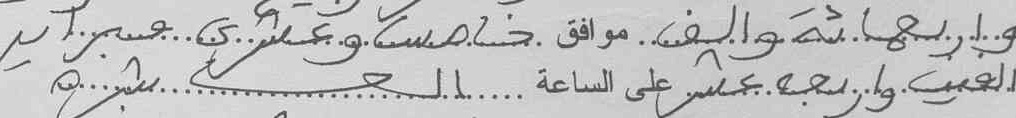 واربعمائة والف موافق خامس وعشرين فبراير
الفين واربعة عشر على الساعة عشرة